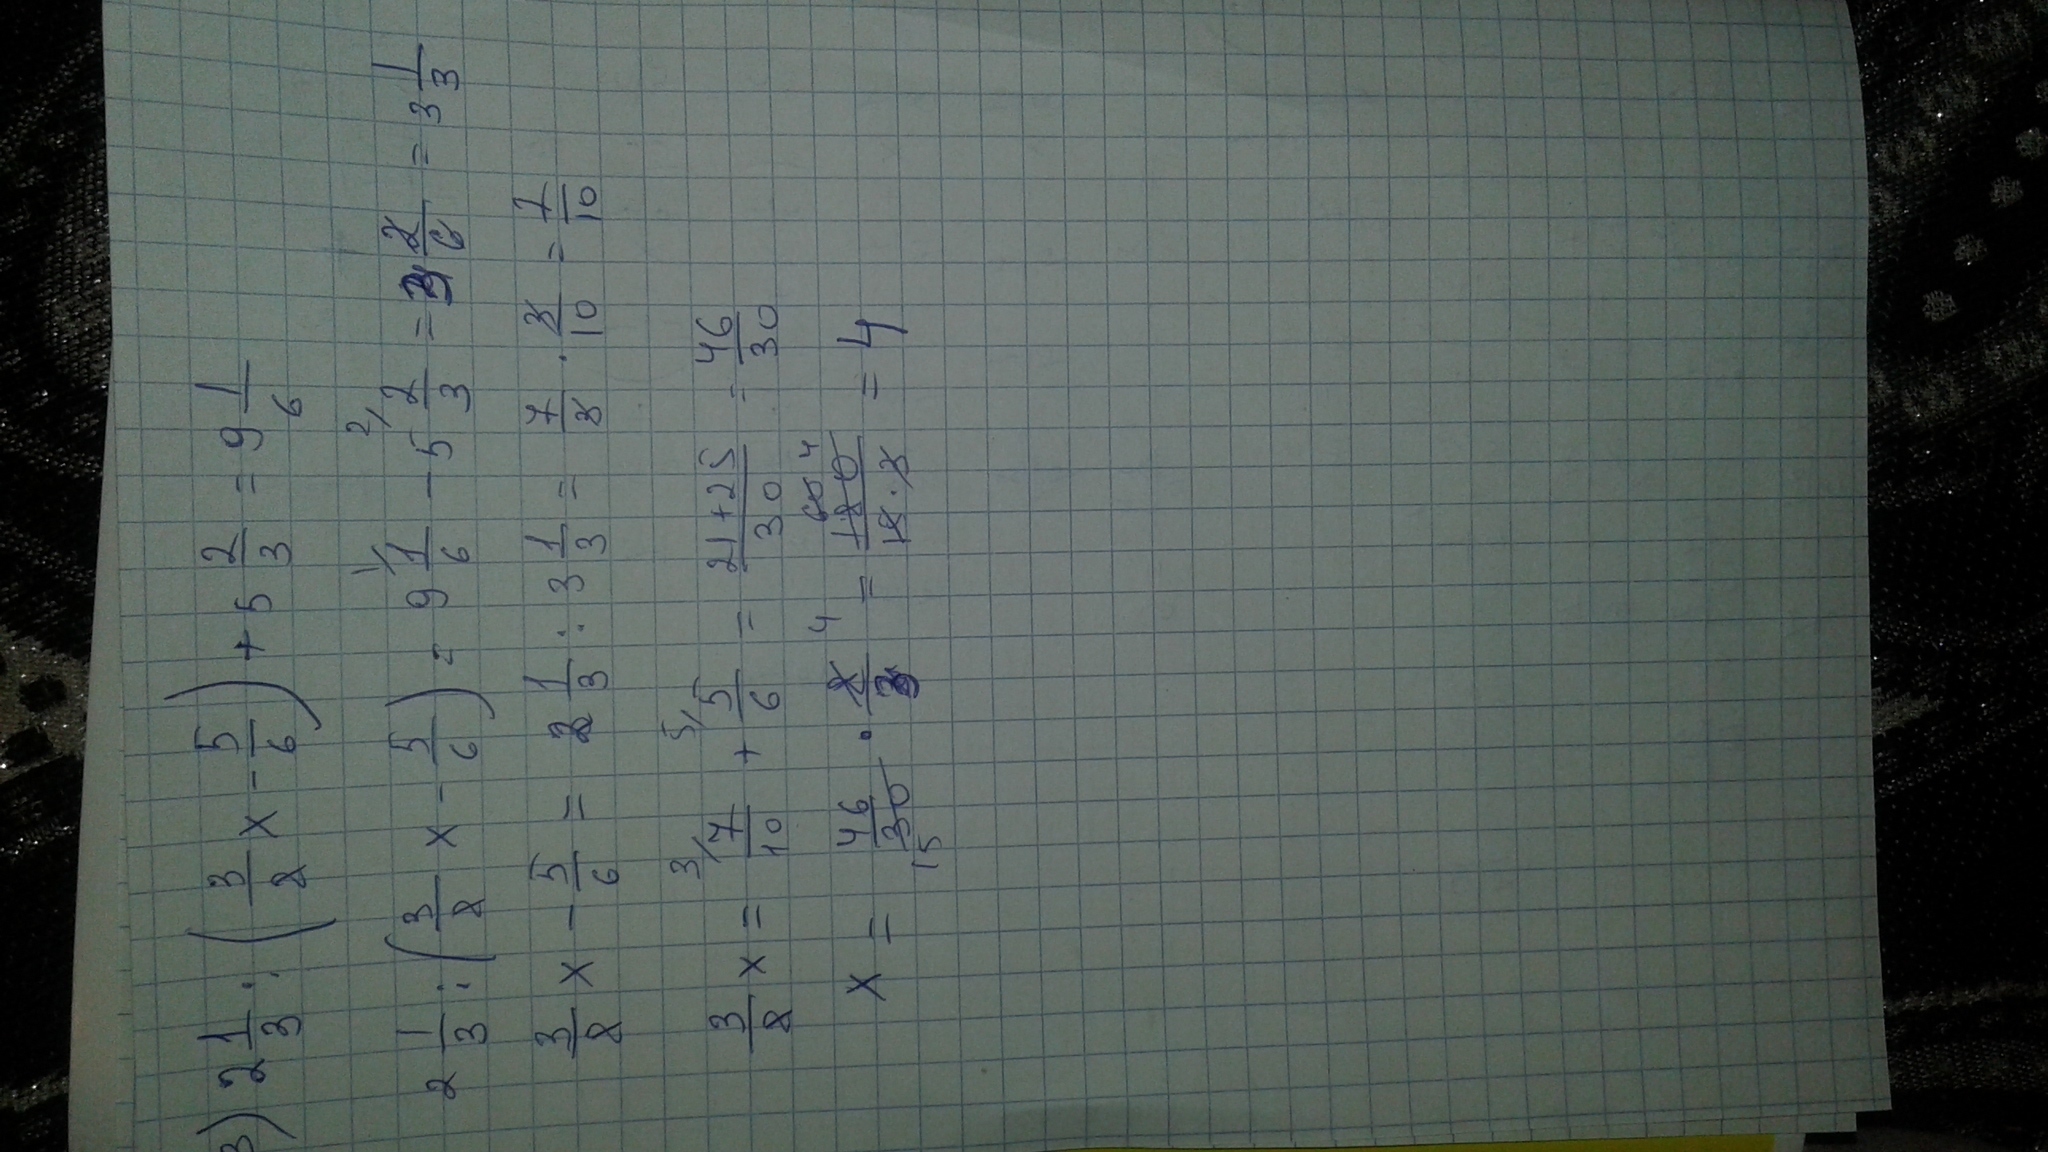 3) 2 1/3 : (3/8 x - 5/6) + 5 2/3 = 9 1/6
2 1/3 : (3/8 x - 5/6) = 9 1/6 - 5 2/3 = 3 2/6 = 3 1/3
3/8 x - 5/6 = 2 1/3 : 3 1/3 = 7/3 · 3/10 = 7/10
3/8 x = 7/10 + 5/6 = 21+25/30 = 46/30
x = 46/30 · 8/3 = 180/15·3 = 4